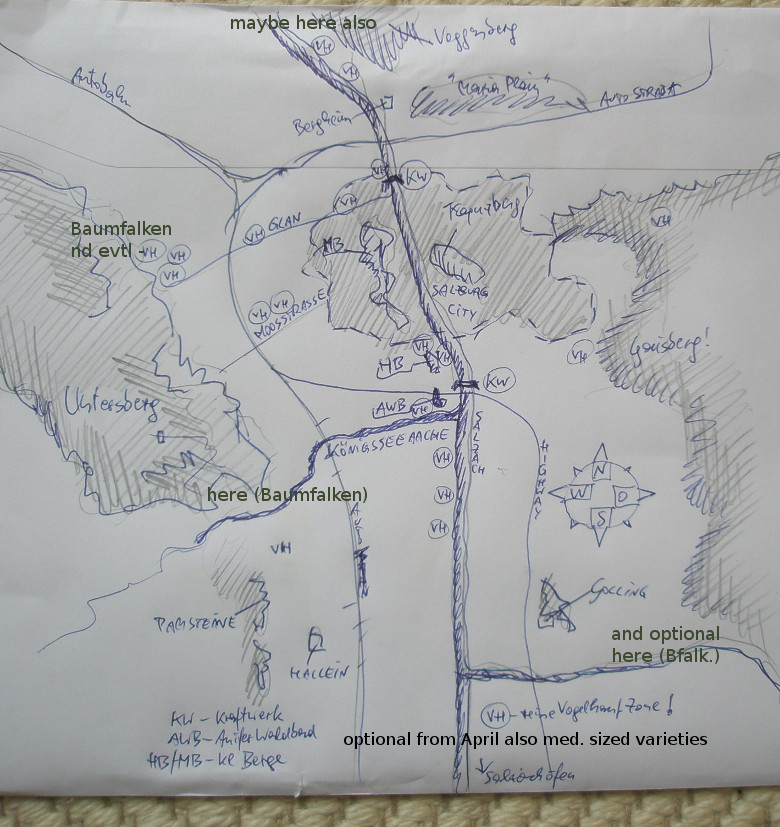 maybe here also
VH
VH
Autobahn
"Maria Plain"
AUTOSTRADA
Bergheim
VH
KW
VH
Kapuzberg!
VH
Baumfalken
nd evtl -
VH
VH
VH
VH GLAN
MB
SALZBURG
CITY
VH
VH
MOOSSTRASSE
VH
VH
VH
Gaisberg!
HB
KW
Untersberg
AWB
VH
KÖNIGSSEEACHE
SALZACH
HIGHWAY
VH
VH
VH
N
W
O
S
here (Baumfalken)
VH
GOLLING
HALLEIN
and optional
here (Bfalk.)
KW - Kraftwerk
AWB - Anifer Waldbad
HB/MB - kl Berge
VH
optional from April also med. sized varieties